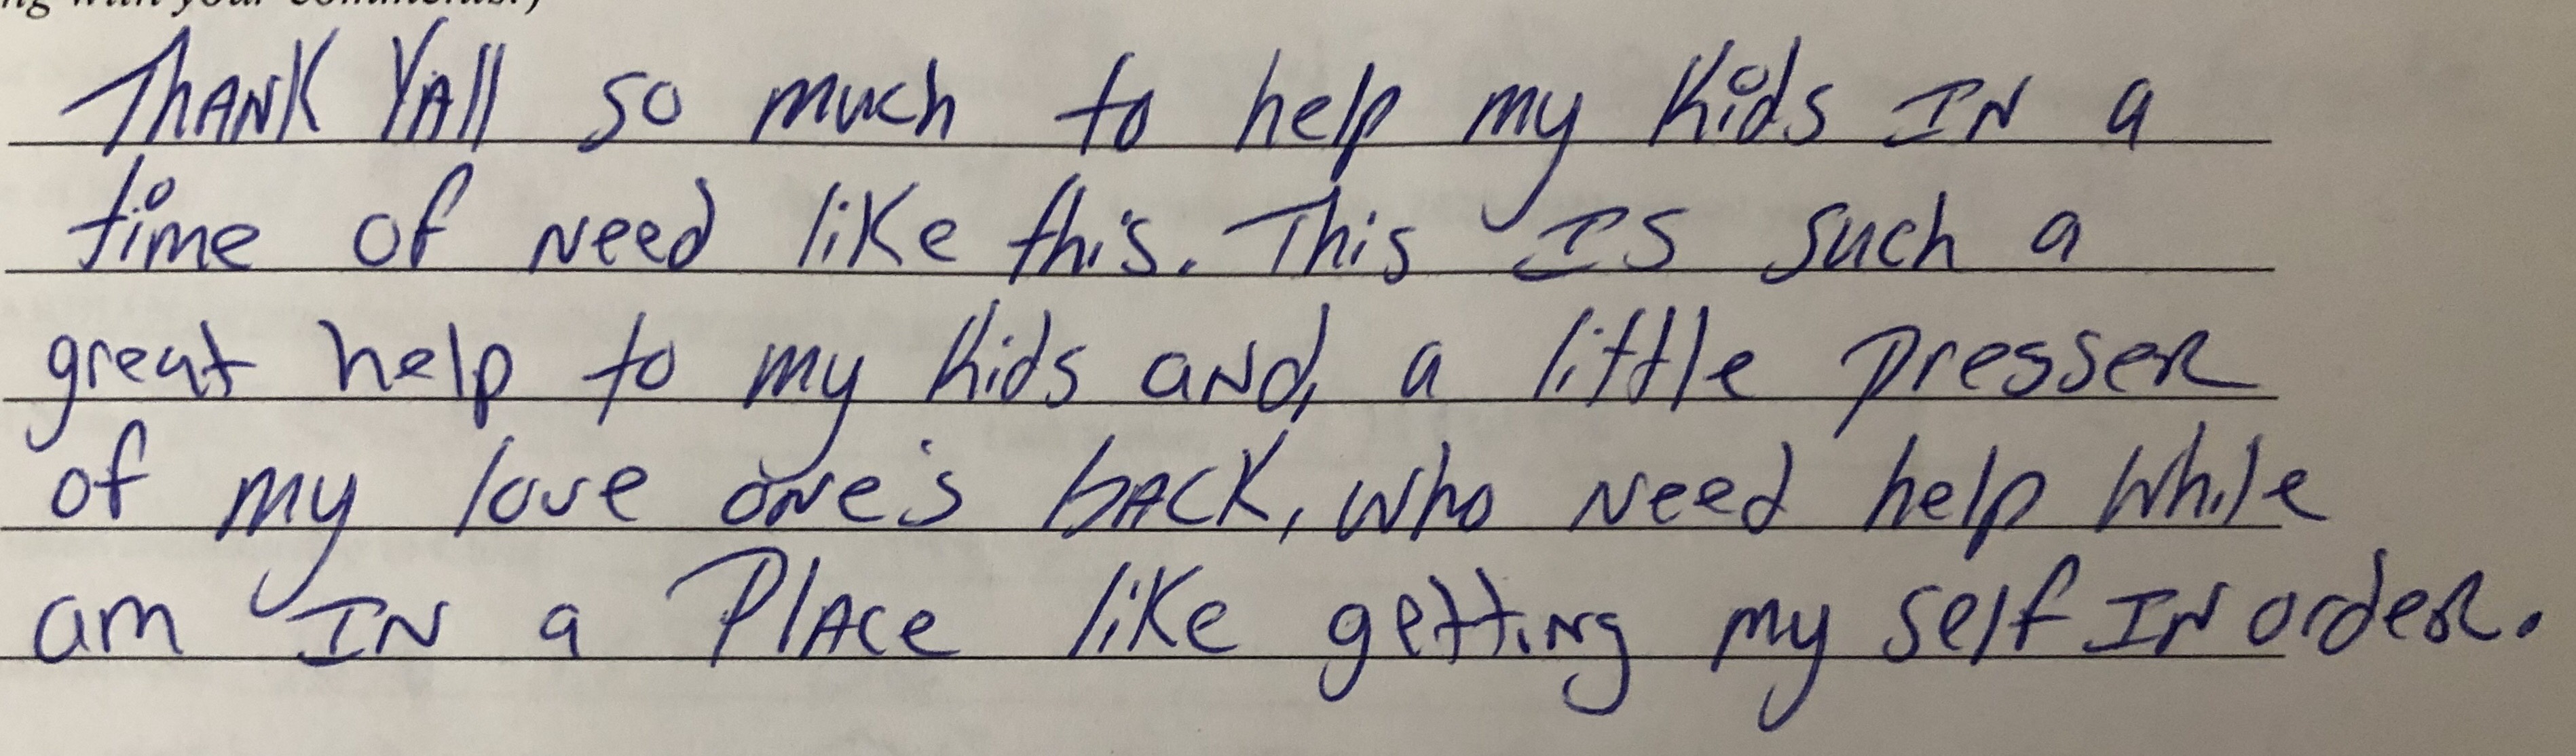 ng with your comments.)
Thank Yall so much to help my kids IN a
time of Need like this. This IS such a
great help to my kids and, a little presser
of my love one's back, who Need help while
am IN a Place like getting my self IN order.